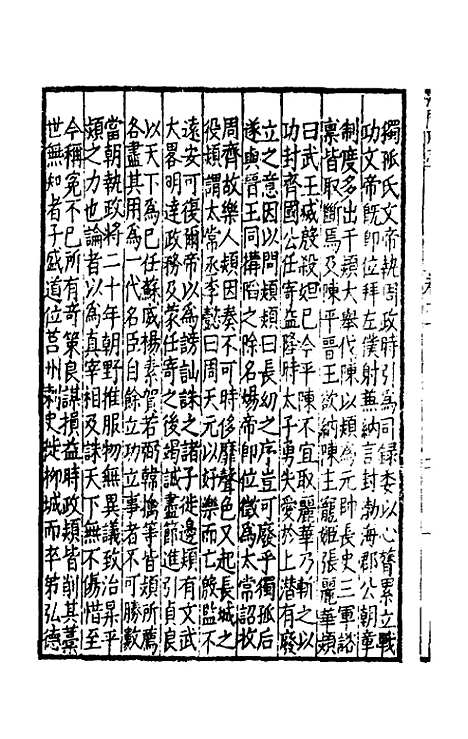 獨孤氏文帝執周政時引為司録委以心膂累立戰
功文帝旣即位拜左僕射蒹納言封勃海郡公朝章
制度多出于頴大舉伐陳以頴為元帥長史三軍諮
禀皆取斷焉及陳平晋王欲納陳主寵姬張麗華頴
曰武王㓕殷殺妲巳今平陳不宜取麗華乃斬之以
功封齊國公任寄益隆時太子勇失愛於上潛有廢
立之意因以問頴頴曰長幼之序豈可廢乎獨孤后
遂與晉王同搆䧟之除名煬帝即位徵為太常詔收
周齊故樂人頴因奏不可時侈靡聲色又起長城之
役頴謂太常丞李懿曰周天元以好樂而亡殷鑑不
遠安可復爾帝以為謗訕誅之諸子徙邊頴有文武
大畧明達政務及蒙任寄之後竭誠盡節進引貞良
以天下為巳任蘇威楊素賀若弼韓擒等皆頴所薦
各盡其用為一代名臣自餘立功立事者不可勝數
當朝執政將二十年朝野推服物無異議致治昇平
頴之力也論者以為真宰相及誅天下無不傷惜至
今稱寃不巳所有竒策良謀損益時政頴皆削其藁
世無知者子盛道位莒州刺史徙柳城而卒第弘德